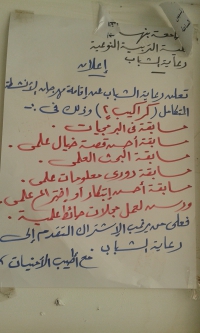 جامعة بنها
كلية التربية النوعية
رعاية الشباب
إعلان
تعلن رعاية الشباب عن إقامة مهرجان الأنشطة
التكامل (كراكيب ٢) وذلك فى :-
مسابقة فى البرمجيات .
مسابقة أحسن قصة خيال علمى .
مسابقة البحث العلمى .
مسابقة دورى معلومات علمى .
مسابقة أحسن إبتكار أو إختراع علمى .
ورش لعمل مجلات حائط علمية .
فعلى من يرغب الإشتراك التقدم إلى
رعاية الشباب .
مع أطيب الأمنيات